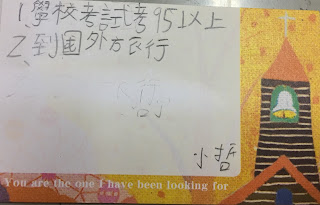 1.學校考試考95以上
2.到國外方良行
小哲
You are the one I have been looking for